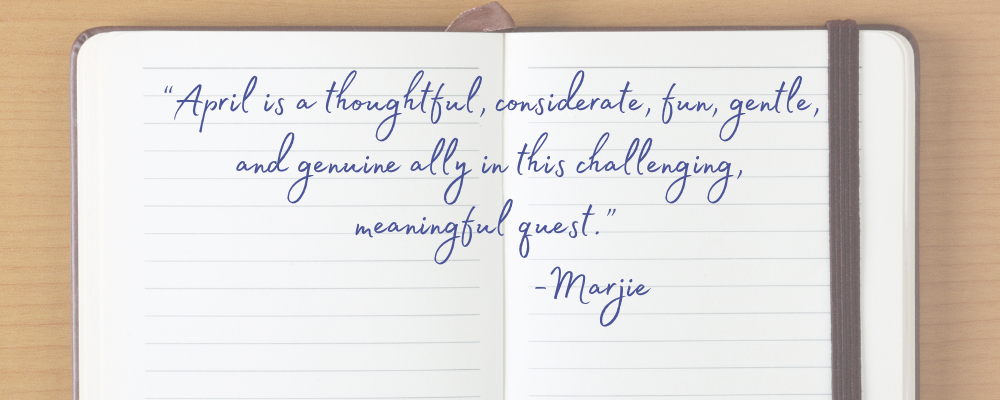 “April is a thoughtful, considerate, fun, gentle,
and genuine ally in this challenging,
meaningful quest.”
-Marjie